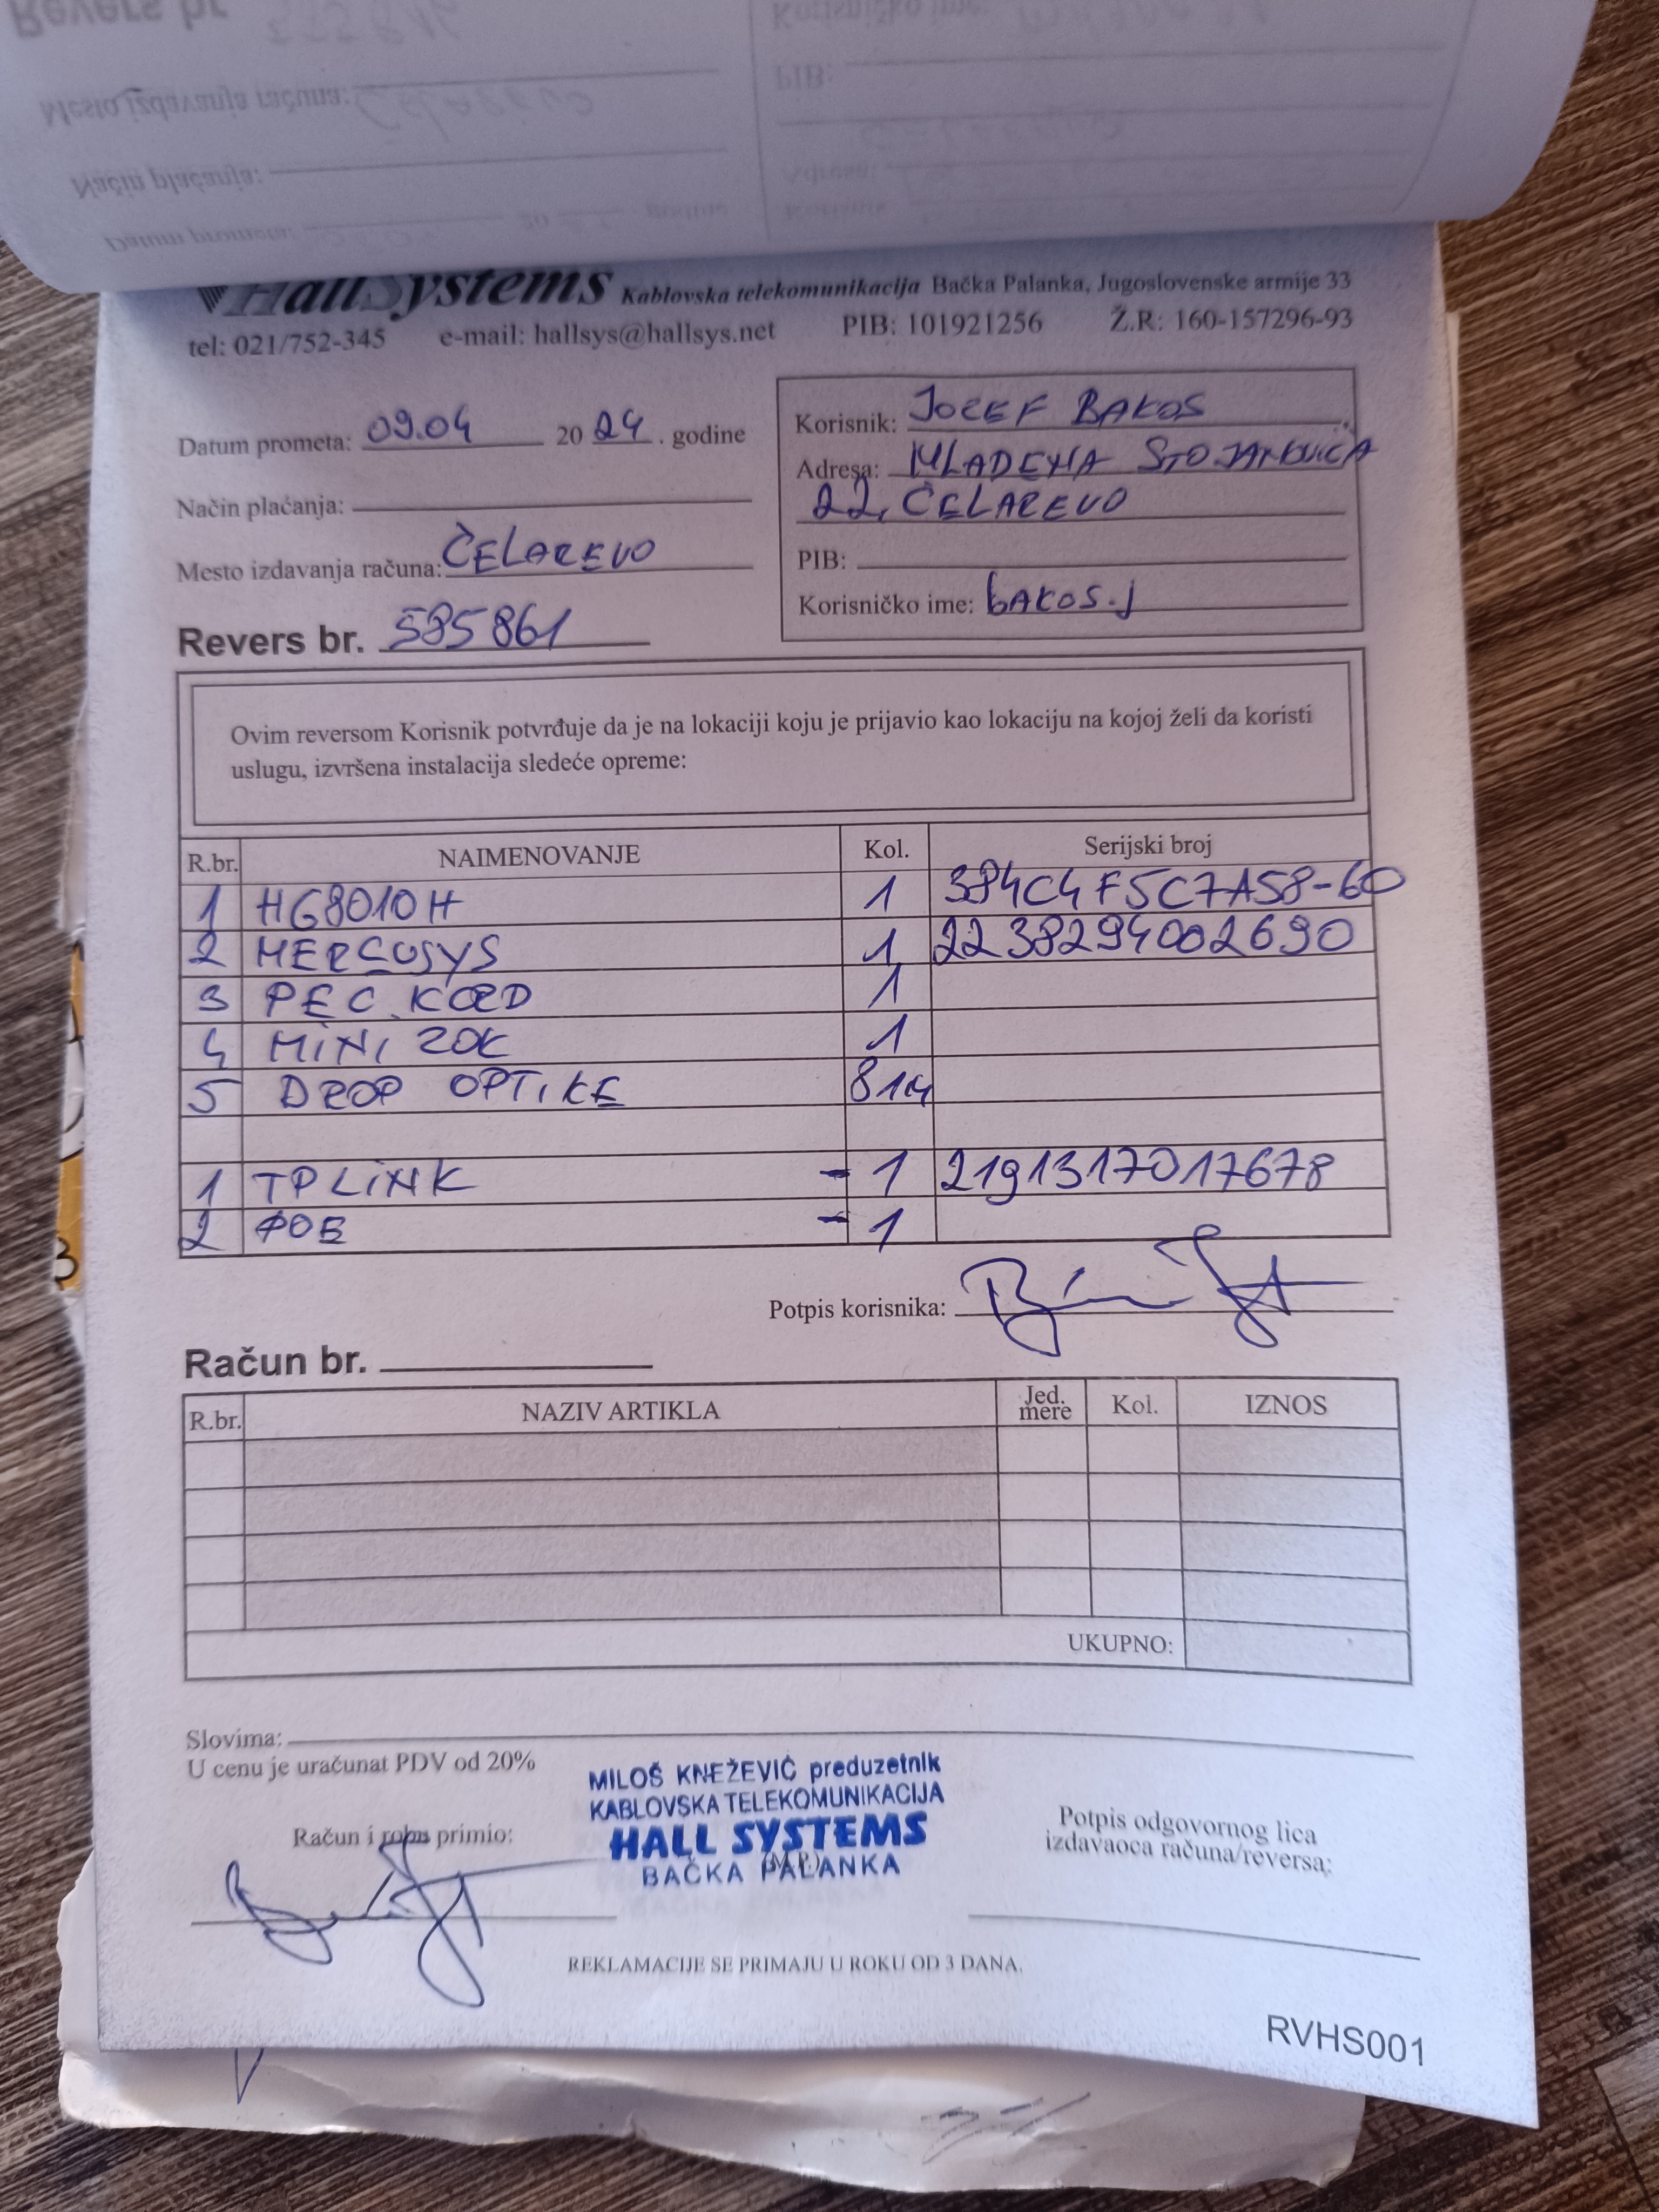 Revers br
Mesto izdavanja računa:
Način plaćanja:
Datum prometa:
Korisničko ime:
PIB:
HallSystems Kablovska telekomunikacija Bačka Palanka, Jugoslovenske armije 33
tel: 021/752-345 e-mail: hallsys@hallsys.net PIB: 101921256 Ž.R: 160-157296-93
Datum prometa: 09.04 2024. godine
Način plaćanja:
Mesto izdavanja računa: ČELAREVO
Revers br. 585861
Korisnik: JOZEF BAKOS
Adresa: MLADENA STOJANOVIĆA
22, ČELAREVO
PIB:
Korisničko ime: bAKOS.J
Ovim reversom Korisnik potvrđuje da je na lokaciji koju je prijavio kao lokaciju na kojoj želi da koristi
uslugu, izvršena instalacija sledeće opreme:
R.br. NAIMENOVANJE Kol. Serijski broj
1 HG8010H 1 384C4F5C7A58-60
2 MERCUSYS 1 2238294002690
3 PEC. KORD 1
4 MINI ZOK 1
5 DROP OPTIKE 81M
1 TP LINK - 1 2191317017678
2 POE - 1
Potpis korisnika:
Račun br.
R.br. NAZIV ARTIKLA Jed. mere Kol. IZNOS
UKUPNO:
Slovima:
U cenu je uračunat PDV od 20%
MILOŠ KNEŽEVIĆ preduzetnik
KABLOVSKA TELEKOMUNIKACIJA
HALL SYSTEMS
BAČKA PALANKA
(M.P.)
Račun i robu primio:
Potpis odgovornog lica
izdavaoca računa/reversa:
REKLAMACIJE SE PRIMAJU U ROKU OD 3 DANA.
RVHS001